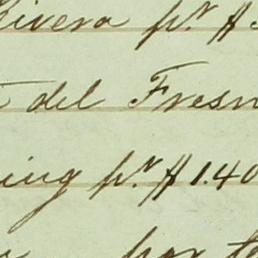 Rivera pr. $
del Fresn
ing pr. $1.40
por